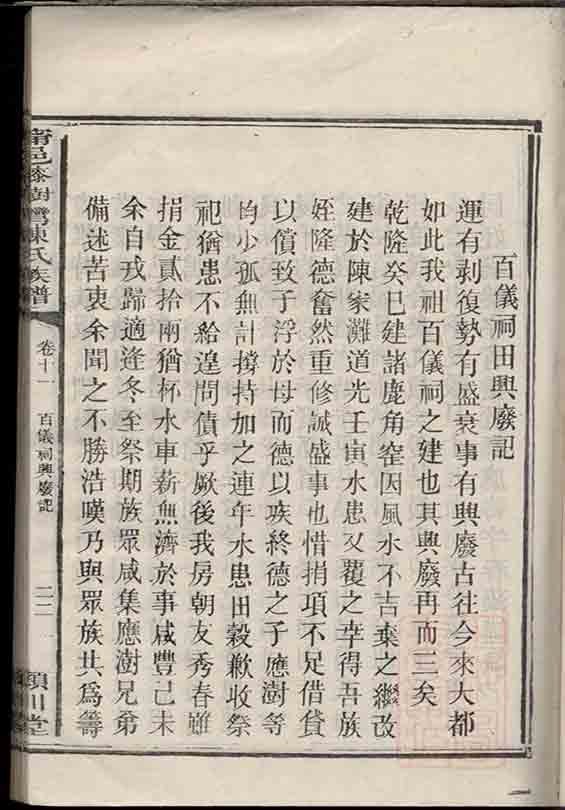 百儀祠田興廢記
運有剥復勢有盛衰事有興廢古往今來大都
如此我祖百儀祠之建也其興廢再而三矣
乾隆癸巳建諸鹿角窑因風水不吉棄之繼改
建於陳家灘道光壬寅水患又覆之幸得吾族
姪隆德奮然重修誠盛事也惜捐項不足借貸
以償致子浮於母而德以疾終德之子應澍等
均少孤無計撐持加之連年水患田穀歉收祭
祀猶患不給遑問債乎厥後我房朝友秀春雖
捐金貳拾兩猶杯水車薪無濟於事咸豐己未
余自戎歸適逢冬至祭期族眾咸集應澍兄弟
備述苦衷余聞之不勝浩嘆乃與眾族共為籌
邑 樹灣陳氏族譜
卷十一
百儀祠興廢記
二二
潁川堂